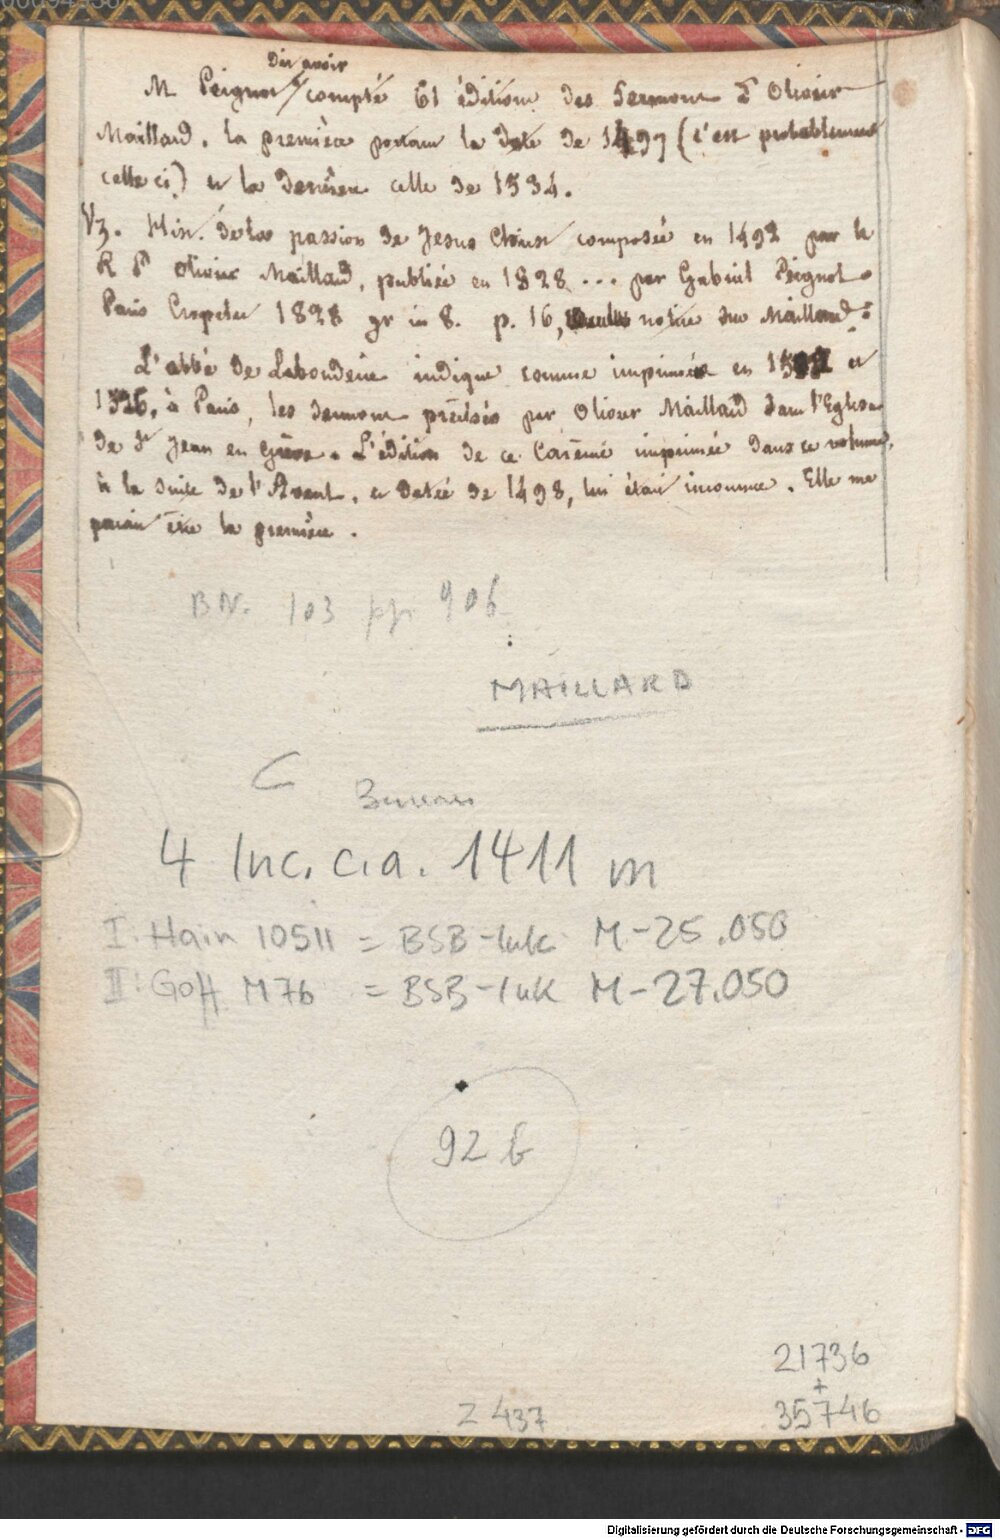 dit avoir
M Peignot compté 61 éditions des Sermons d'Olivier
Maillard, la première portant la date de 1497 (c'est probablement
celle ci) et la dernière celle de 1534.
Vz. Hist. de la passion de Jesus Christ composée en 1492 par le
R P Olivier Maillard, publiée en 1828 ... par Gabriel Peignot.
Paris Crapelet 1828 gr in 8. p. 16, notice sur Maillard.
L'abbé de Labouderie indique comme imprimés en et
1526, à Paris, les sermons prêchés par Olivier Maillard dans l'Eglise
de St Jean en Grève. L'édition de ce Carême imprimée dans ce volume,
à la suite de l'Avent, et datée de 1498, lui était inconnue. Elle me
parait être la première.
BN. 103 pp. 906
MAILLARD
C
4 Inc. c.a. 1411 m
I: Hain 10511 = BSB-Ink M-25.050
II: Goff M76 = BSB-Ink M-27.050
92 6
21736
+
35746
Z 437
Digitalisierung gefördert durch die Deutsche Forschungsgemeinschaft - DFG